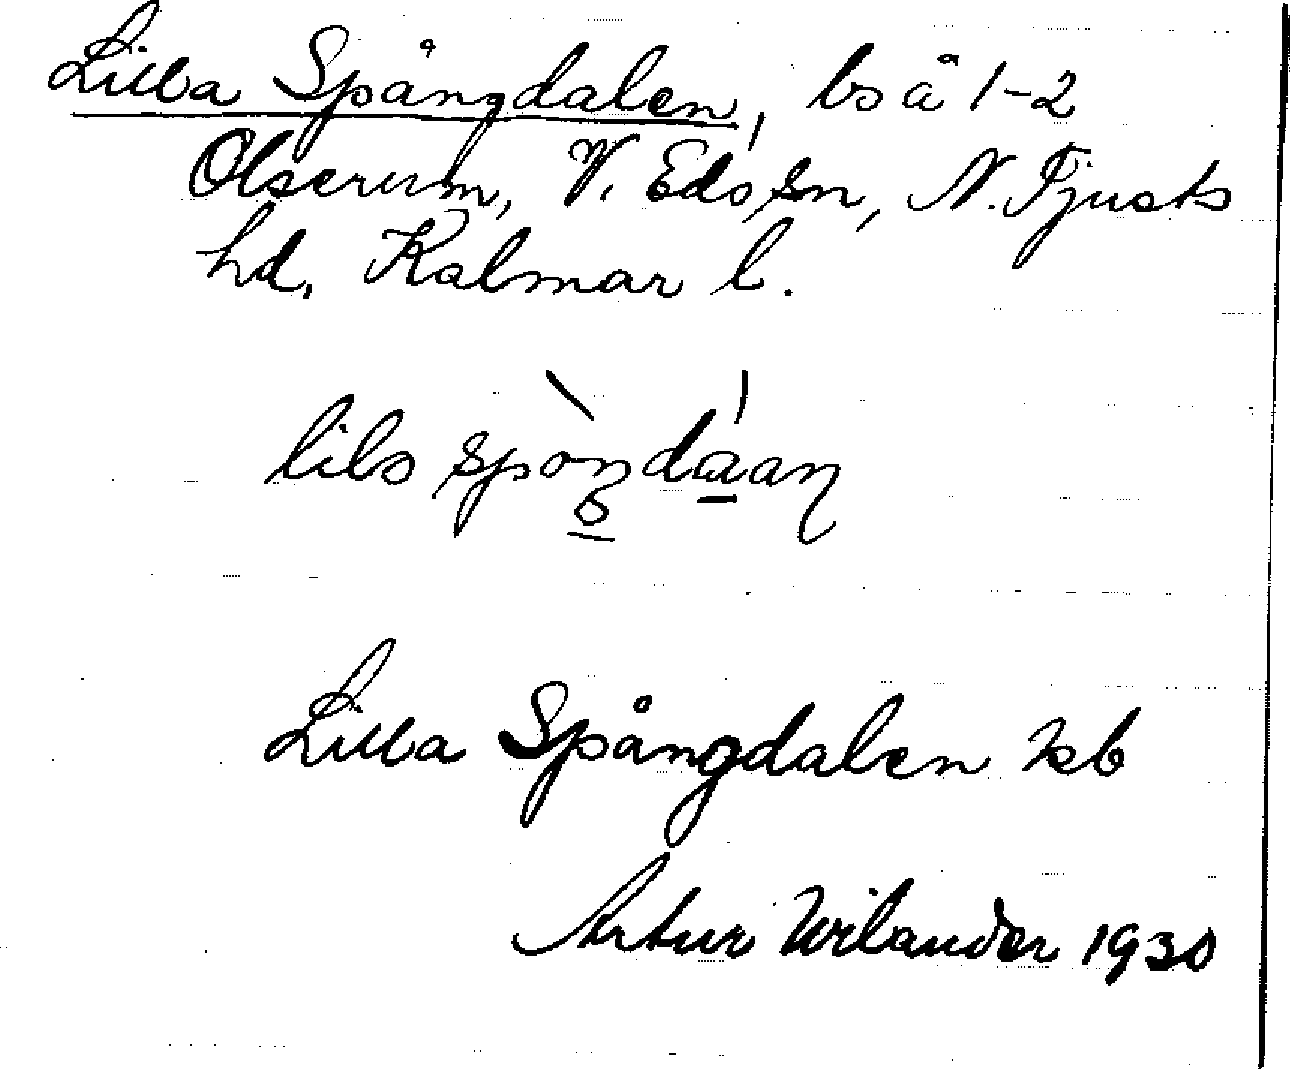 Lilla Spångdalen, bs å 1-2
Olserum, V. Eds sn, N. Tjusts
hd, Kalmar l.
Lilla Spångdalen kb
Artur Wilander 1930